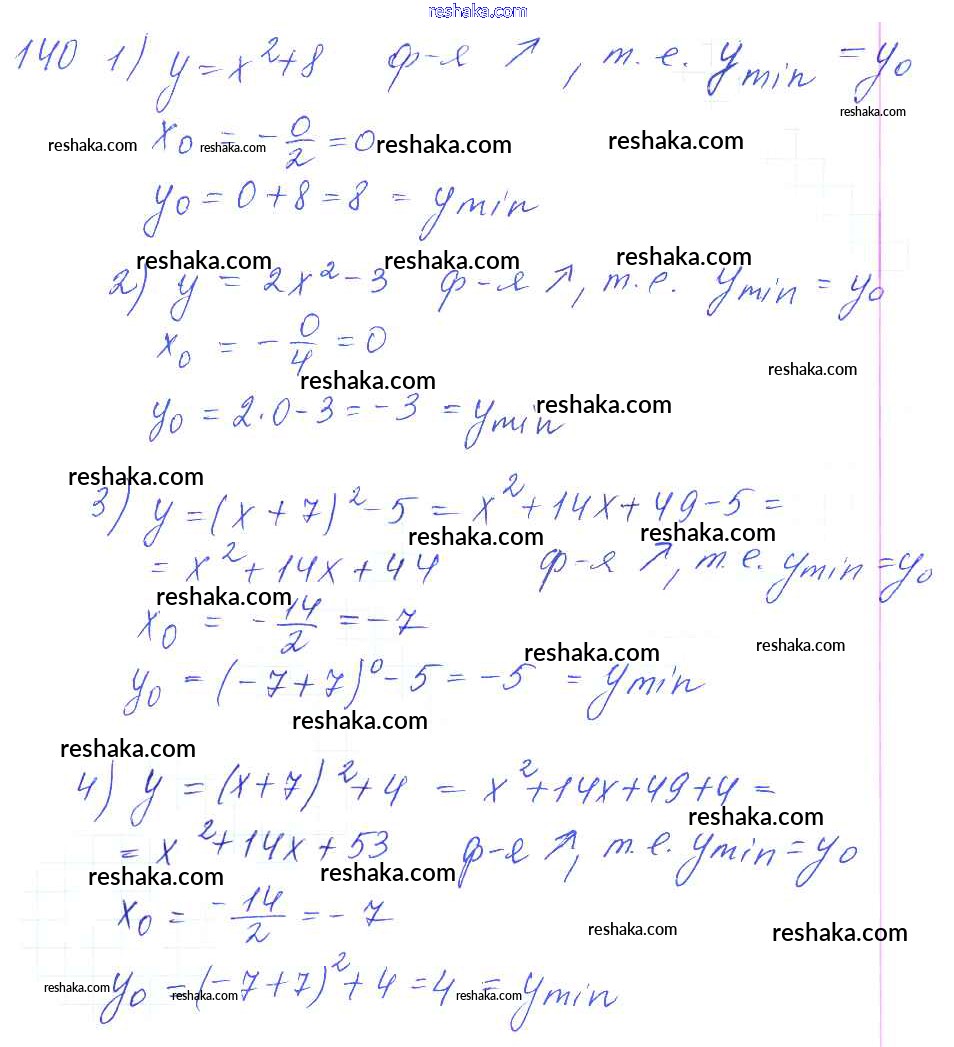 reshaka.com
140 1) y = x² + 8 ф-я ↗, т.е. y min = y₀
reshaka.com
x₀ = - 0/2 = 0
reshaka.com reshaka.com reshaka.com reshaka.com
y₀ = 0 + 8 = 8 = y min
reshaka.com reshaka.com reshaka.com
2) y = 2x² - 3 ф-я ↗, т.е. y min = y₀
x₀ = - 0/4 = 0
reshaka.com reshaka.com
y₀ = 2·0 - 3 = -3 = y min
reshaka.com
reshaka.com
3) y = (x + 7)² - 5 = x² + 14x + 49 - 5 =
reshaka.com reshaka.com
= x² + 14x + 44 ф-я ↗, т.е. y min = y₀
reshaka.com
x₀ = - 14/2 = -7
reshaka.com reshaka.com
y₀ = (-7+7)⁰ - 5 = -5 = y min
reshaka.com
reshaka.com
4) y = (x+7)² + 4 = x² + 14x + 49 + 4 =
reshaka.com
= x² + 14x + 53 ф-я ↗, т.е. y min = y₀
reshaka.com reshaka.com
x₀ = - 14/2 = -7
reshaka.com reshaka.com
y₀ = (-7+7)² + 4 = 4 = y min
reshaka.com reshaka.com reshaka.com